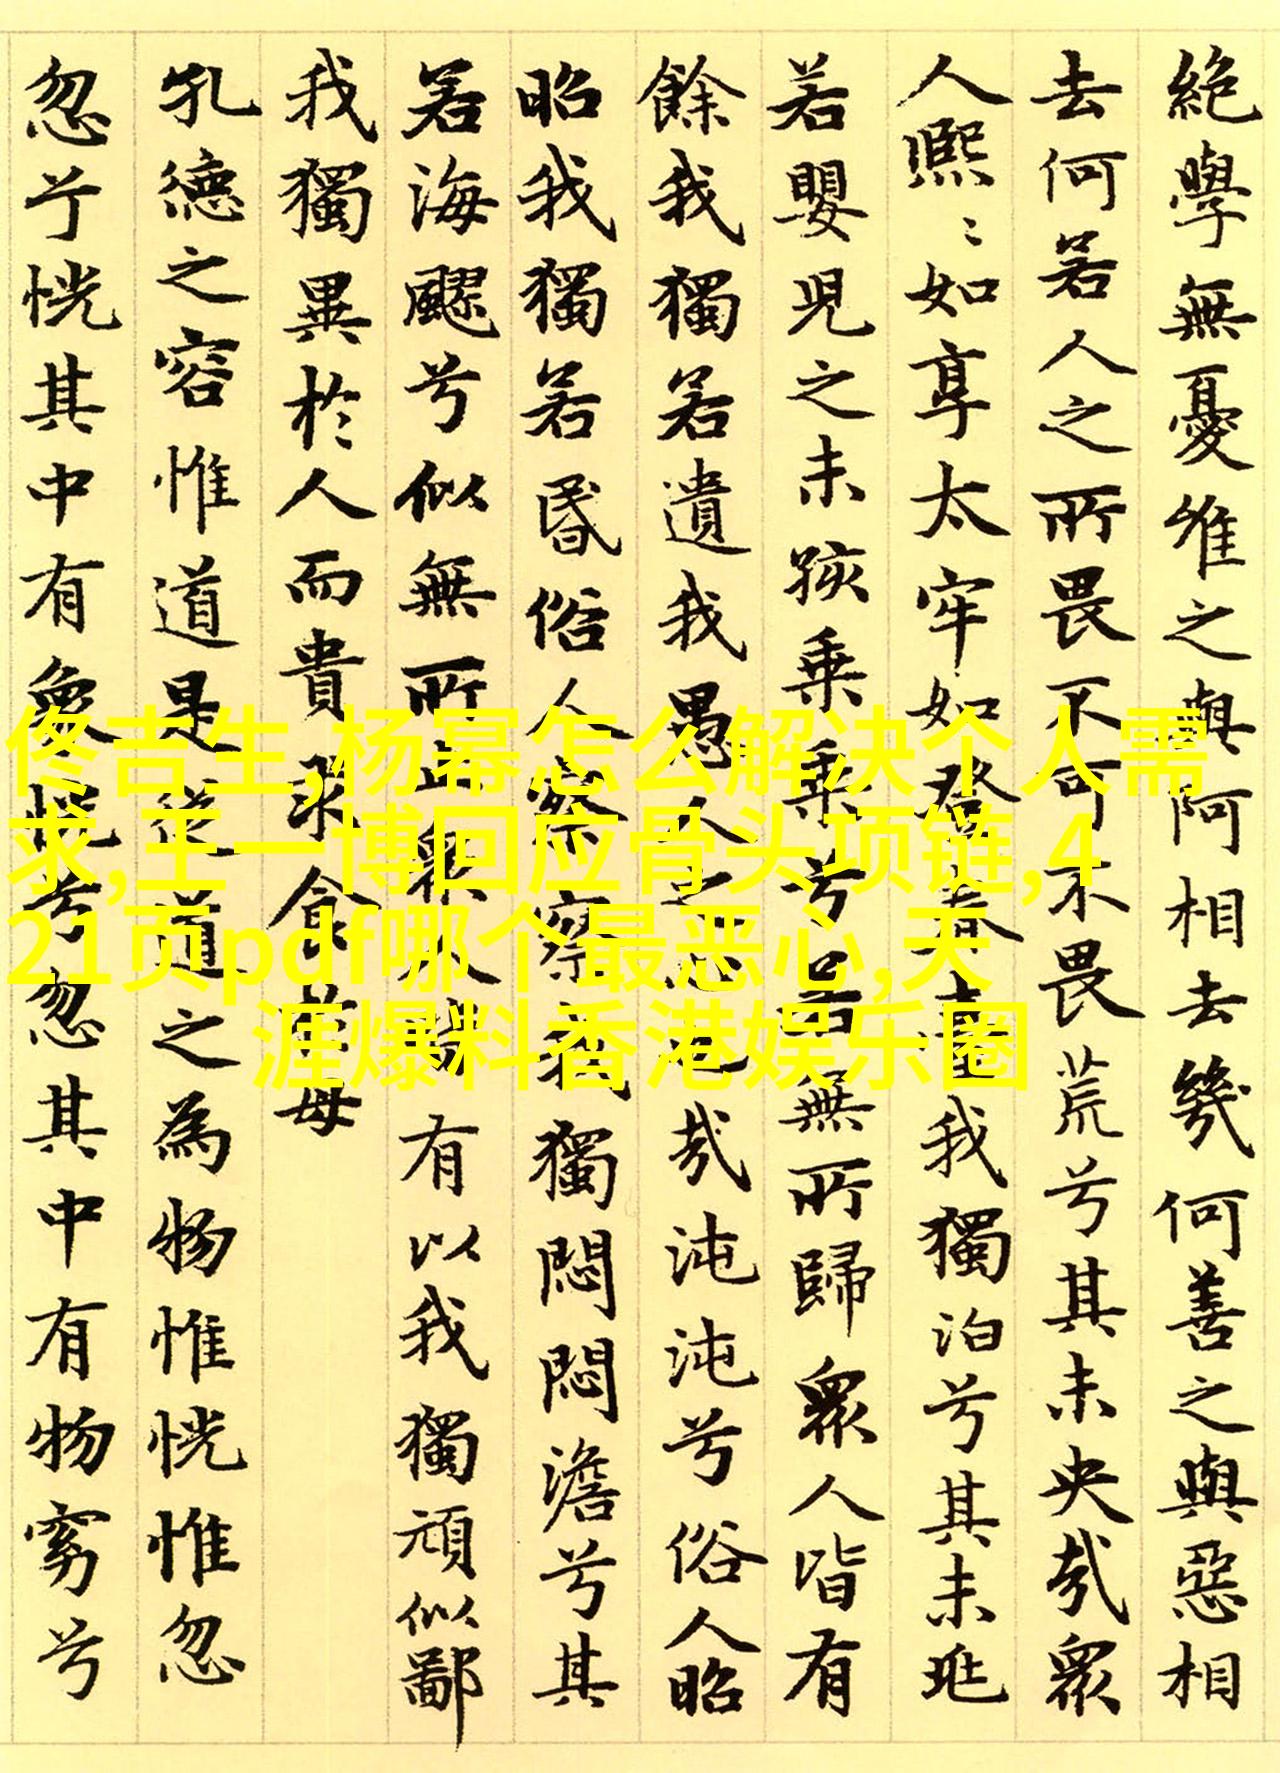 絶學無憂唯之與阿相去幾何善之與惡相
去何若人之所畏不可不畏荒兮其未央哉眾
人熙〻如享太牢如登春臺我獨泊兮其未兆
若嬰兒之未孩乗乗兮若無所歸眾人皆有
餘我獨若遺我愚人之心也哉沌沌兮俗人昭
昭我獨若昏俗人察察我獨悶悶澹兮其
若海飂兮似無所止眾人皆有以我獨頑似鄙
我獨異於人而貴求食於母
孔德之容惟道是從道之為物惟恍惟忽
忽兮恍其中有象恍兮忽其中有物窈兮
佟吉生,杨幂怎么解决个人需
求,王一博回应骨头项链,4
21页pdf哪个最恶心,天
涯爆料香港娱乐圈